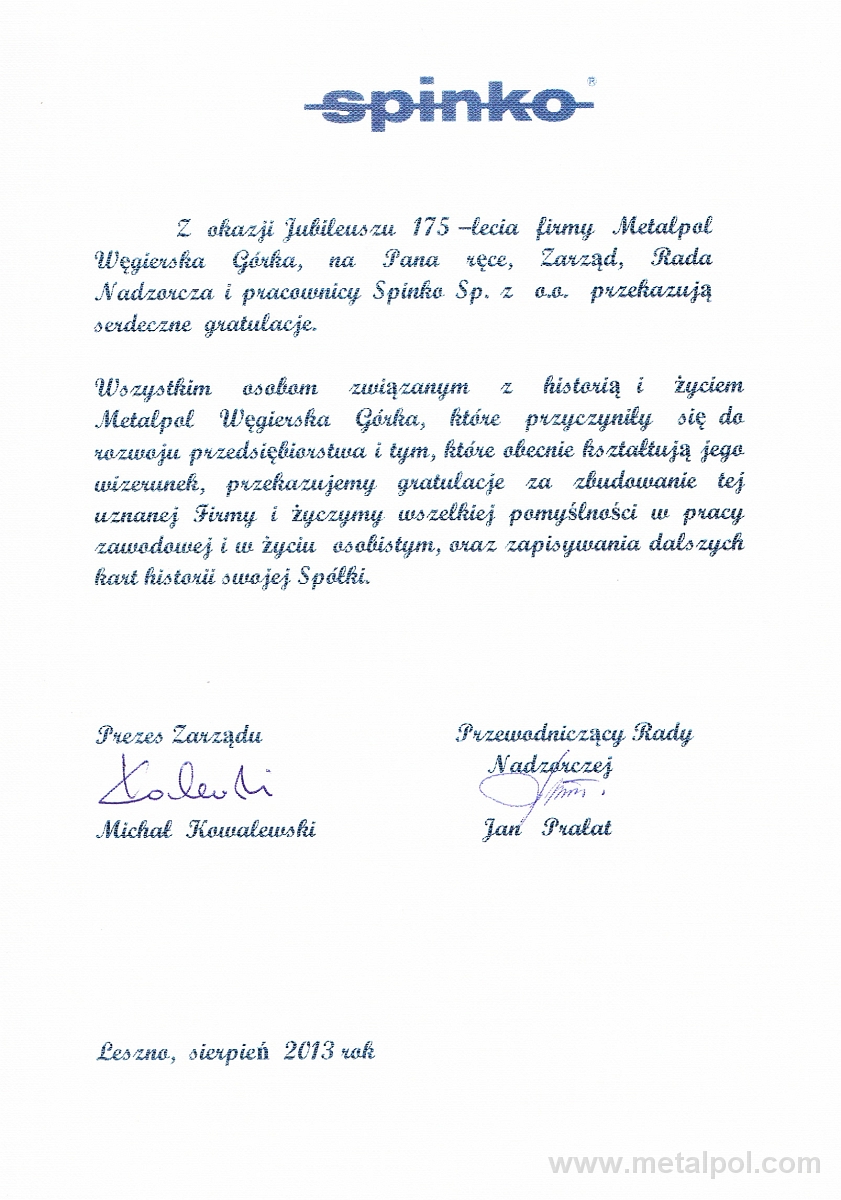 spinko®
Z okazji Jubileuszu 175 –lecia firmy Metalpol
Węgierska Górka, na Pana ręce, Zarząd, Rada
Nadzorcza i pracownicy Spinko Sp. z o.o. przekazują
serdeczne gratulacje.
Wszystkim osobom związanym z historią i życiem
Metalpol Węgierska Górka, które przyczyniły się do
rozwoju przedsiębiorstwa i tym, które obecnie kształtują jego
wizerunek, przekazujemy gratulacje za zbudowanie tej
uznanej Firmy i życzymy wszelkiej pomyślności w pracy
zawodowej i w życiu osobistym, oraz zapisywania dalszych
kart historii swojej Spółki.
Prezes Zarządu
Michał Kowalewski
Przewodniczący Rady
Nadzorczej
Jan Prałat
Leszno, sierpień 2013 rok
www.metalpol.com